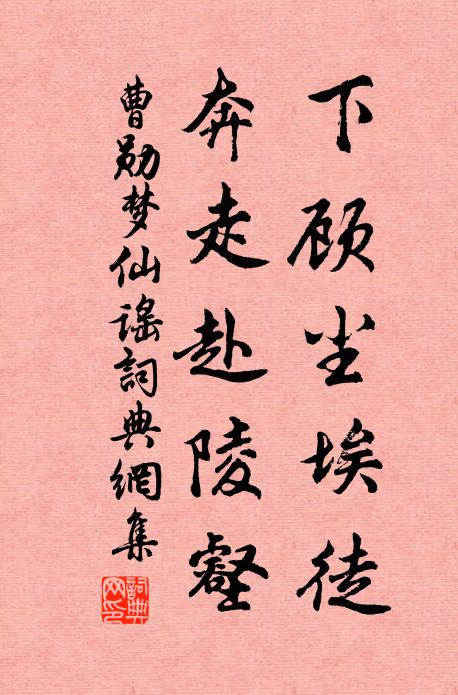 下顾尘埃徒
奔走赴陵壑
曹勋梦仙谣詞典網集
詞典网印